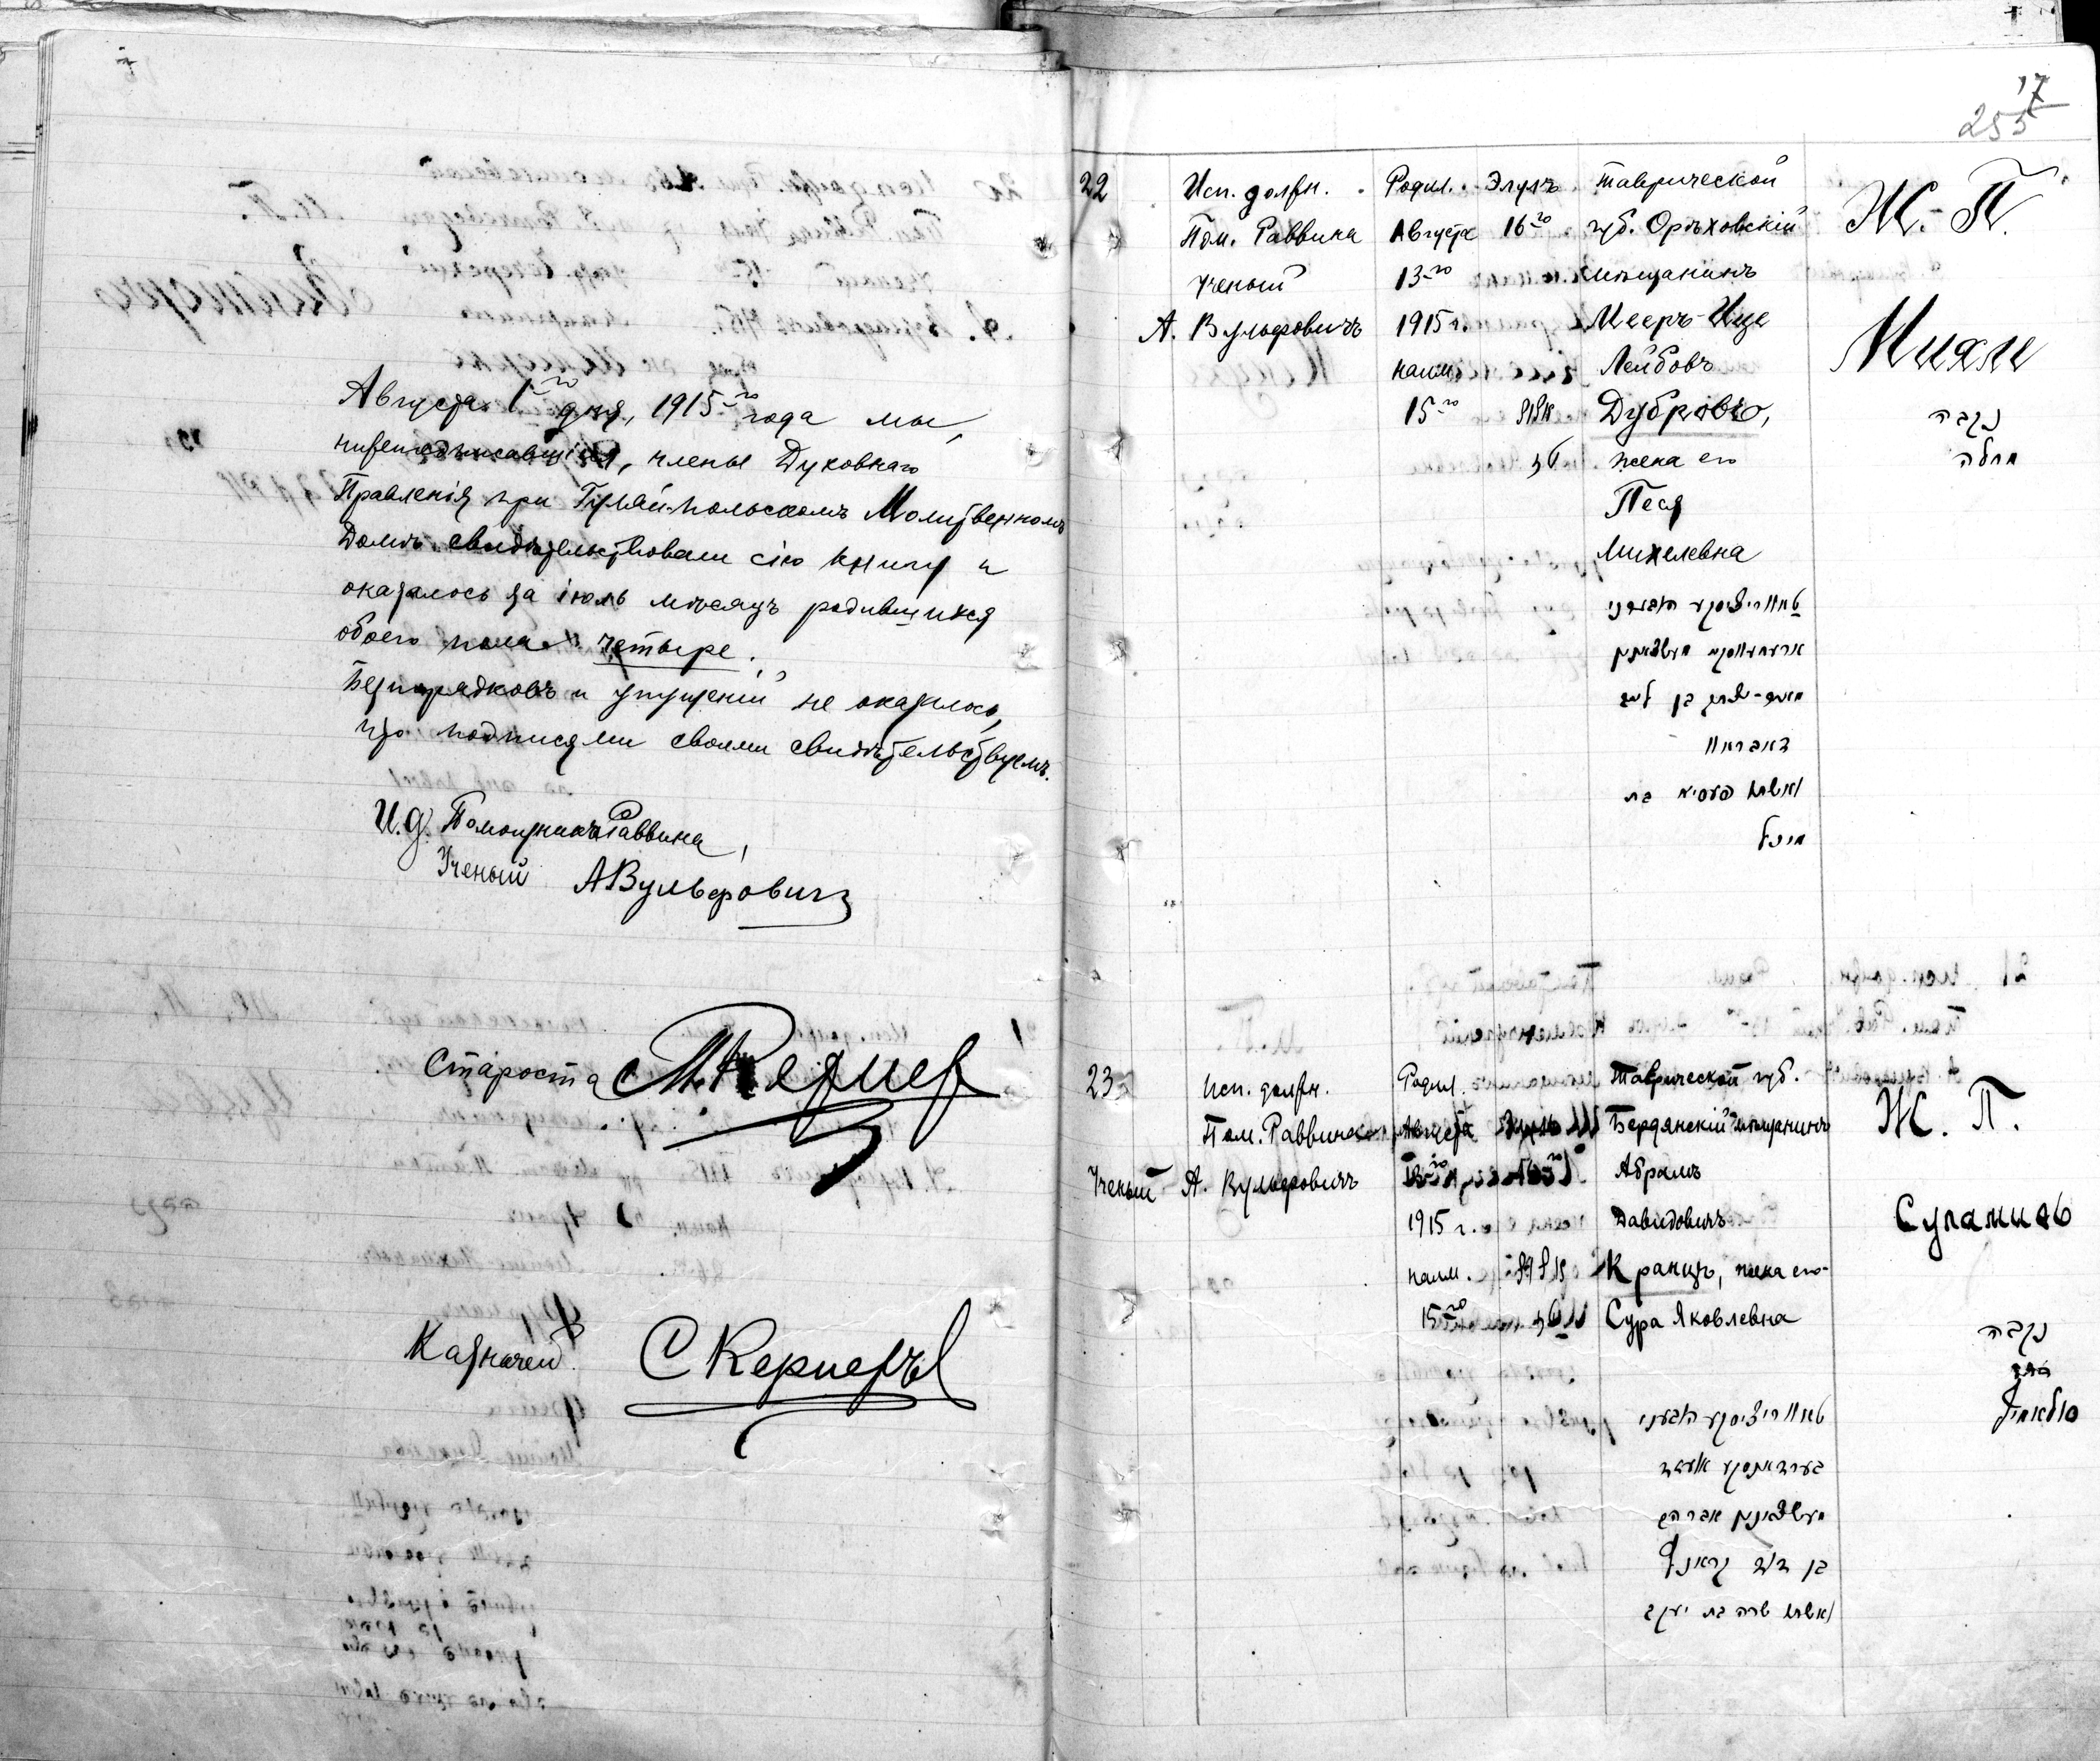 Августа 1го дня, 1915го года мы,
нижеподписавшіеся, члены Духовнаго
Правленія при Гуляй-польскомъ Молитвенномъ
Домѣ свидѣтельствовали сію книгу и
оказалось за іюль мѣсяцъ родившихся
обоего пола четыре.
Безпорядковъ и упущеній не оказалось,
что подписями своими свидѣтельствуемъ.
И.д. Помощника Раввина,
Ученый АВульфовичъ
Староста
Казначей СКернеръ
17
255
22
Исп. должн.
Пом. Раввина
Ученый
А. Вульфовичъ
Родил.
Августа
13го
1915 г.
наим.
15го
Элулъ
16го
אלול
טז
Таврической
губ. Орѣховскій
мѣщанинъ
Мееръ-Ице
Лейбовъ
Дубровъ,
жена его
Песя
Михелевна
בן לייב
דאבראוו
ואשתו פעסיא בת
מיכל
Ж. П.
נקבה
23
Исп. должн.
Пом. Раввина
Ученый А. Вульфовичъ
Родил.
Августа
1915 г.
наим.
15го
אלול
Таврической губ.
Бердянскій мѣщанинъ
Абрамъ
Давидовичъ
Кранцъ, жена его
Сура Яковлевна
מעשצאנין אברהם
בן דוד קראנץ
ואשתו שרה בת יעקב
Ж. П.
Суламиѳь
נקבה
סולאמיף